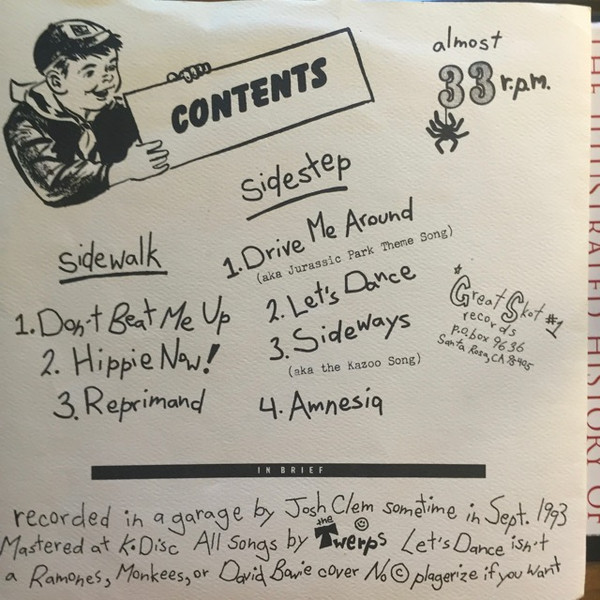 CONTENTS
almost
33 r.p.m.
sidewalk
1. Don't Beat Me Up
2. Hippie Now!
3. Reprimand
sidestep
1. Drive Me Around
(aka Jurassic Park Theme Song)
2. Let's Dance
3. Sideways
(aka the Kazoo Song)
4. Amnesia
Great Skot #1
records
P.O. box 9636
Santa Rosa, CA 95405
IN BRIEF
recorded in a garage by Josh Clem sometime in Sept. 1993
Mastered at K-Disc All songs by the Twerps Let's Dance isn't
a Ramones, Monkees, or David Bowie cover No © plagerize if you want
THE ILLUSTRATED HISTORY OF